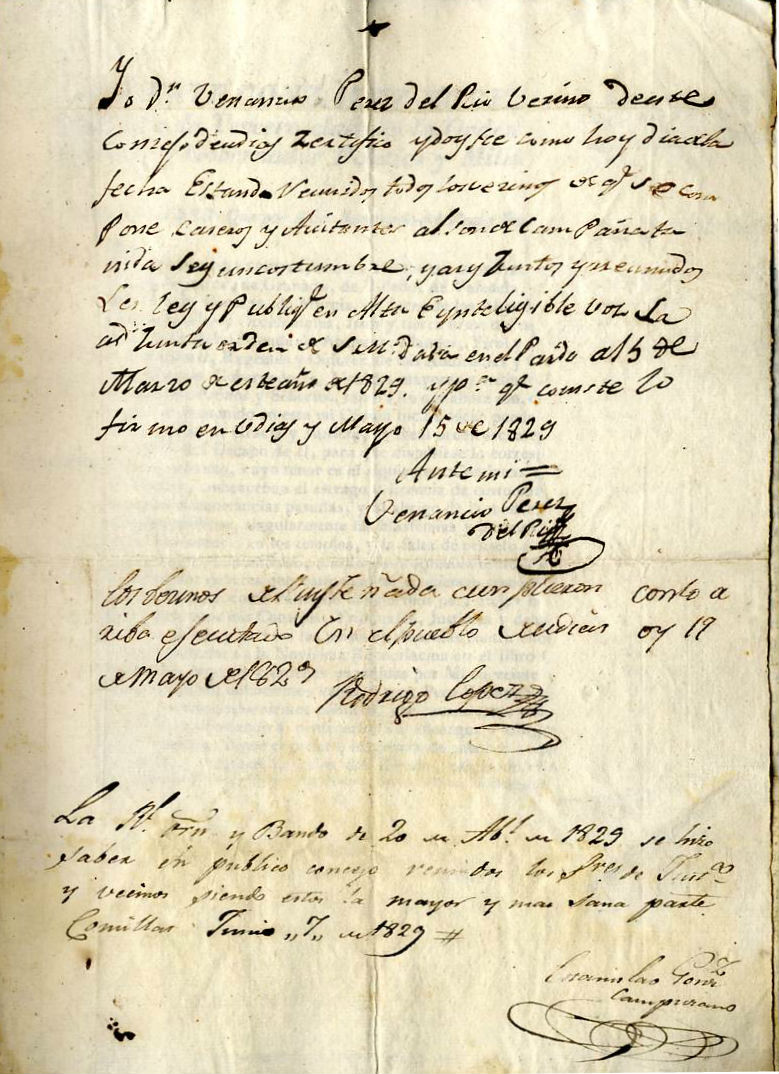 Yo Dn Venancio Perez del Rio Vecino de este
Concejo de Udias Zertifico y doy fee como hoy dia de la
fecha Estando Reunidos todos los vecinos de qe se com
pone Caseros y Avitantes al son de Campana ta
nida segun costumbre, y asi Juntos y reunidos
Les ley y Publiqe en Alta E ynteligible voz La
adJunta orden de S. M. dada en el Pardo a 15 de
Marzo de este año de 1829. y pa qe conste lo
firmo en Udias y Mayo 15 de 1829
Ante mi =
Venancio Perez
del Rio
los becinos de Ruisenada cunplieron con lo a
riba esecutado En el pueblo de udias oy 19
de Mayo de 1829
Rodrigo Lopez
La Rl orn y Bando de 20 de Abl de 1829 se hizo
saber en publico concejo reunidos los Sres de Justa
y vecinos siendo estos la mayor y mas sana parte
Comillas Junio „7„ de 1829 #
Estanislao Gonz
Campuzano